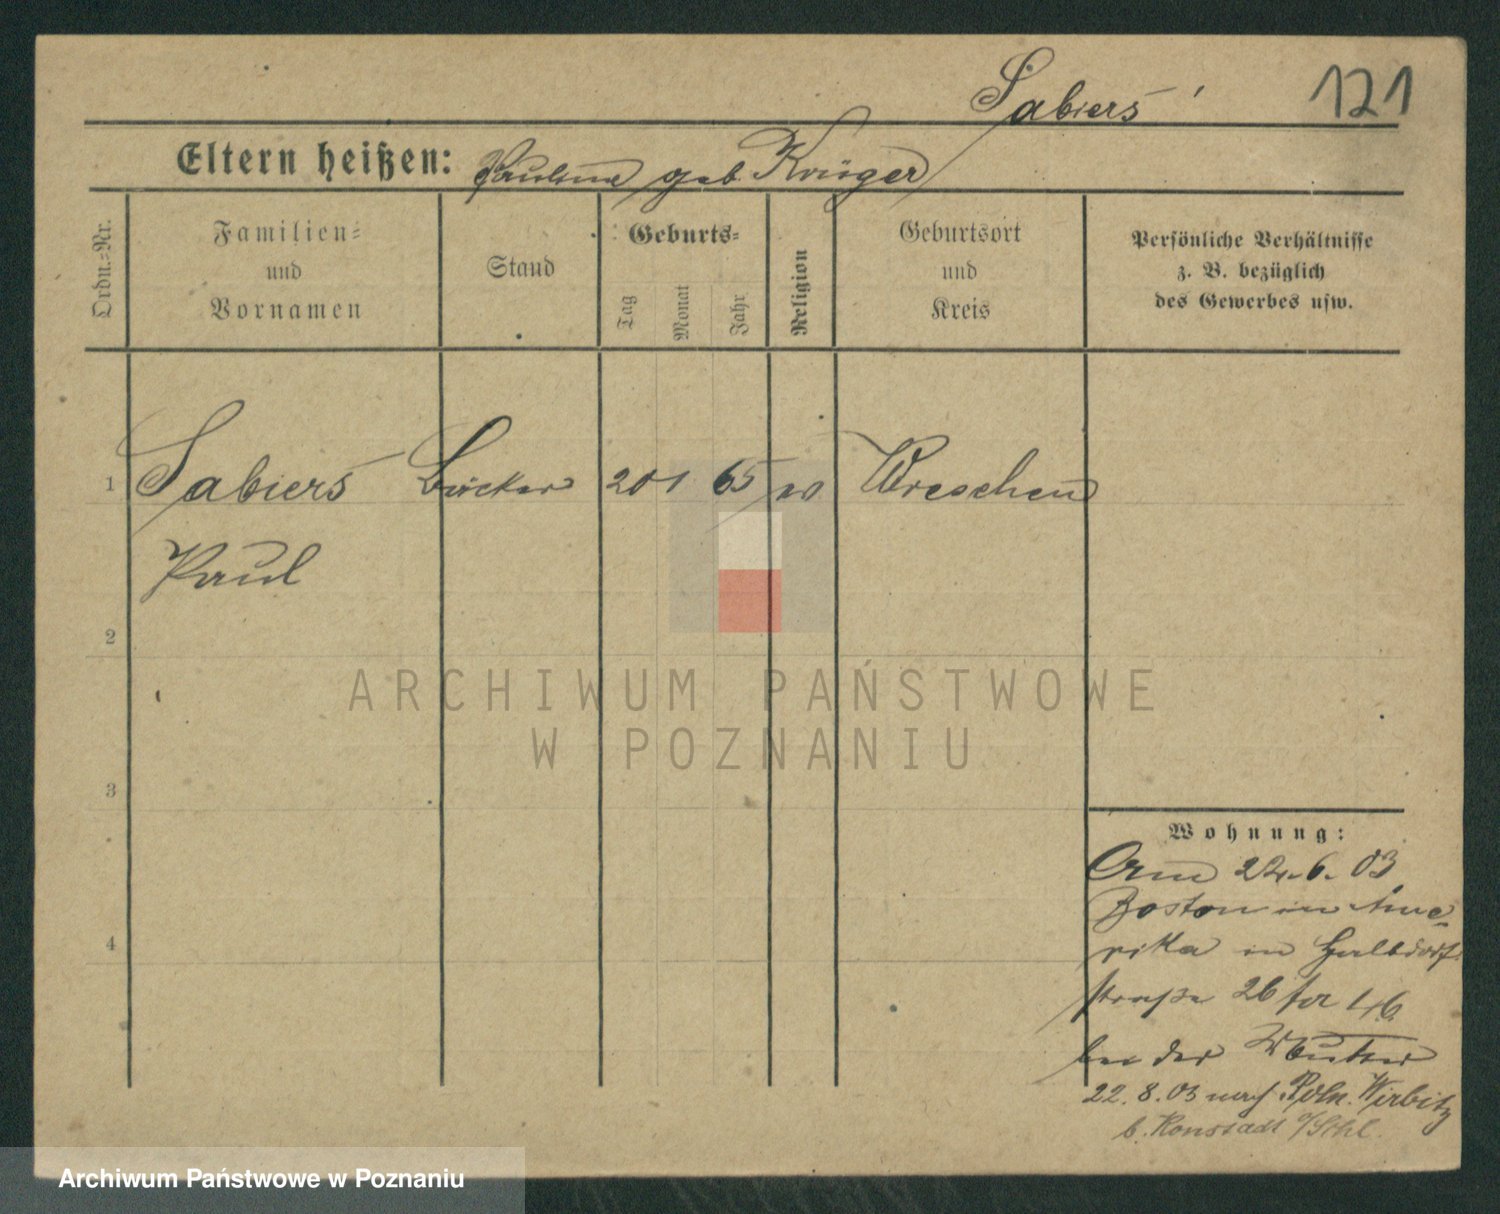 Sabiers
121
Eltern heißen: Pauline geb. Krüger
Ordn.-Nr.
Familien-
und
Vornamen
Stand
Geburts-
Tag
Monat
Jahr
Religion
Geburtsort
und
Kreis
Persönliche Verhältnisse
z. B. bezüglich
des Gewerbes usw.
1 Sabiers Bäcker 20 1 65 Wreschen
Paul
2
3
4
Wohnung:
22.6.03
Boston in Ame-
rika in Halbdorf-
straße 26
bei der Mutter
22.8.03 nach Poln. Würbitz
b. Konstadt O/Schl.
ARCHIWUM PAŃSTWOWE
W POZNANIU
Archiwum Państwowe w Poznaniu